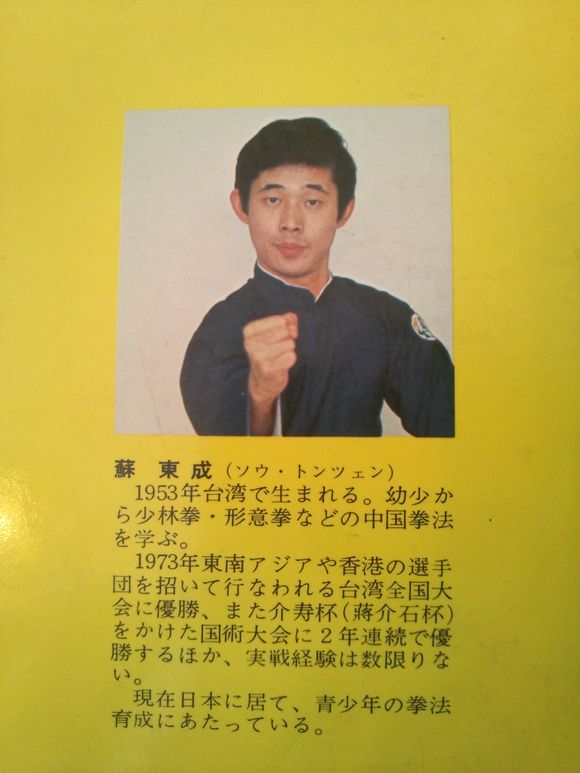 蘇　東成（ソウ・トンツェン）
1953年台湾で生まれる。幼少か
ら少林拳・形意拳などの中国拳法
を学ぶ。
1973年東南アジアや香港の選手
団を招いて行なわれる台湾全国大
会に優勝、また介寿杯（蔣介石杯）
をかけた国術大会に２年連続で優
勝するほか、実戦経験は数限りな
い。
現在日本に居て、青少年の拳法
育成にあたっている。